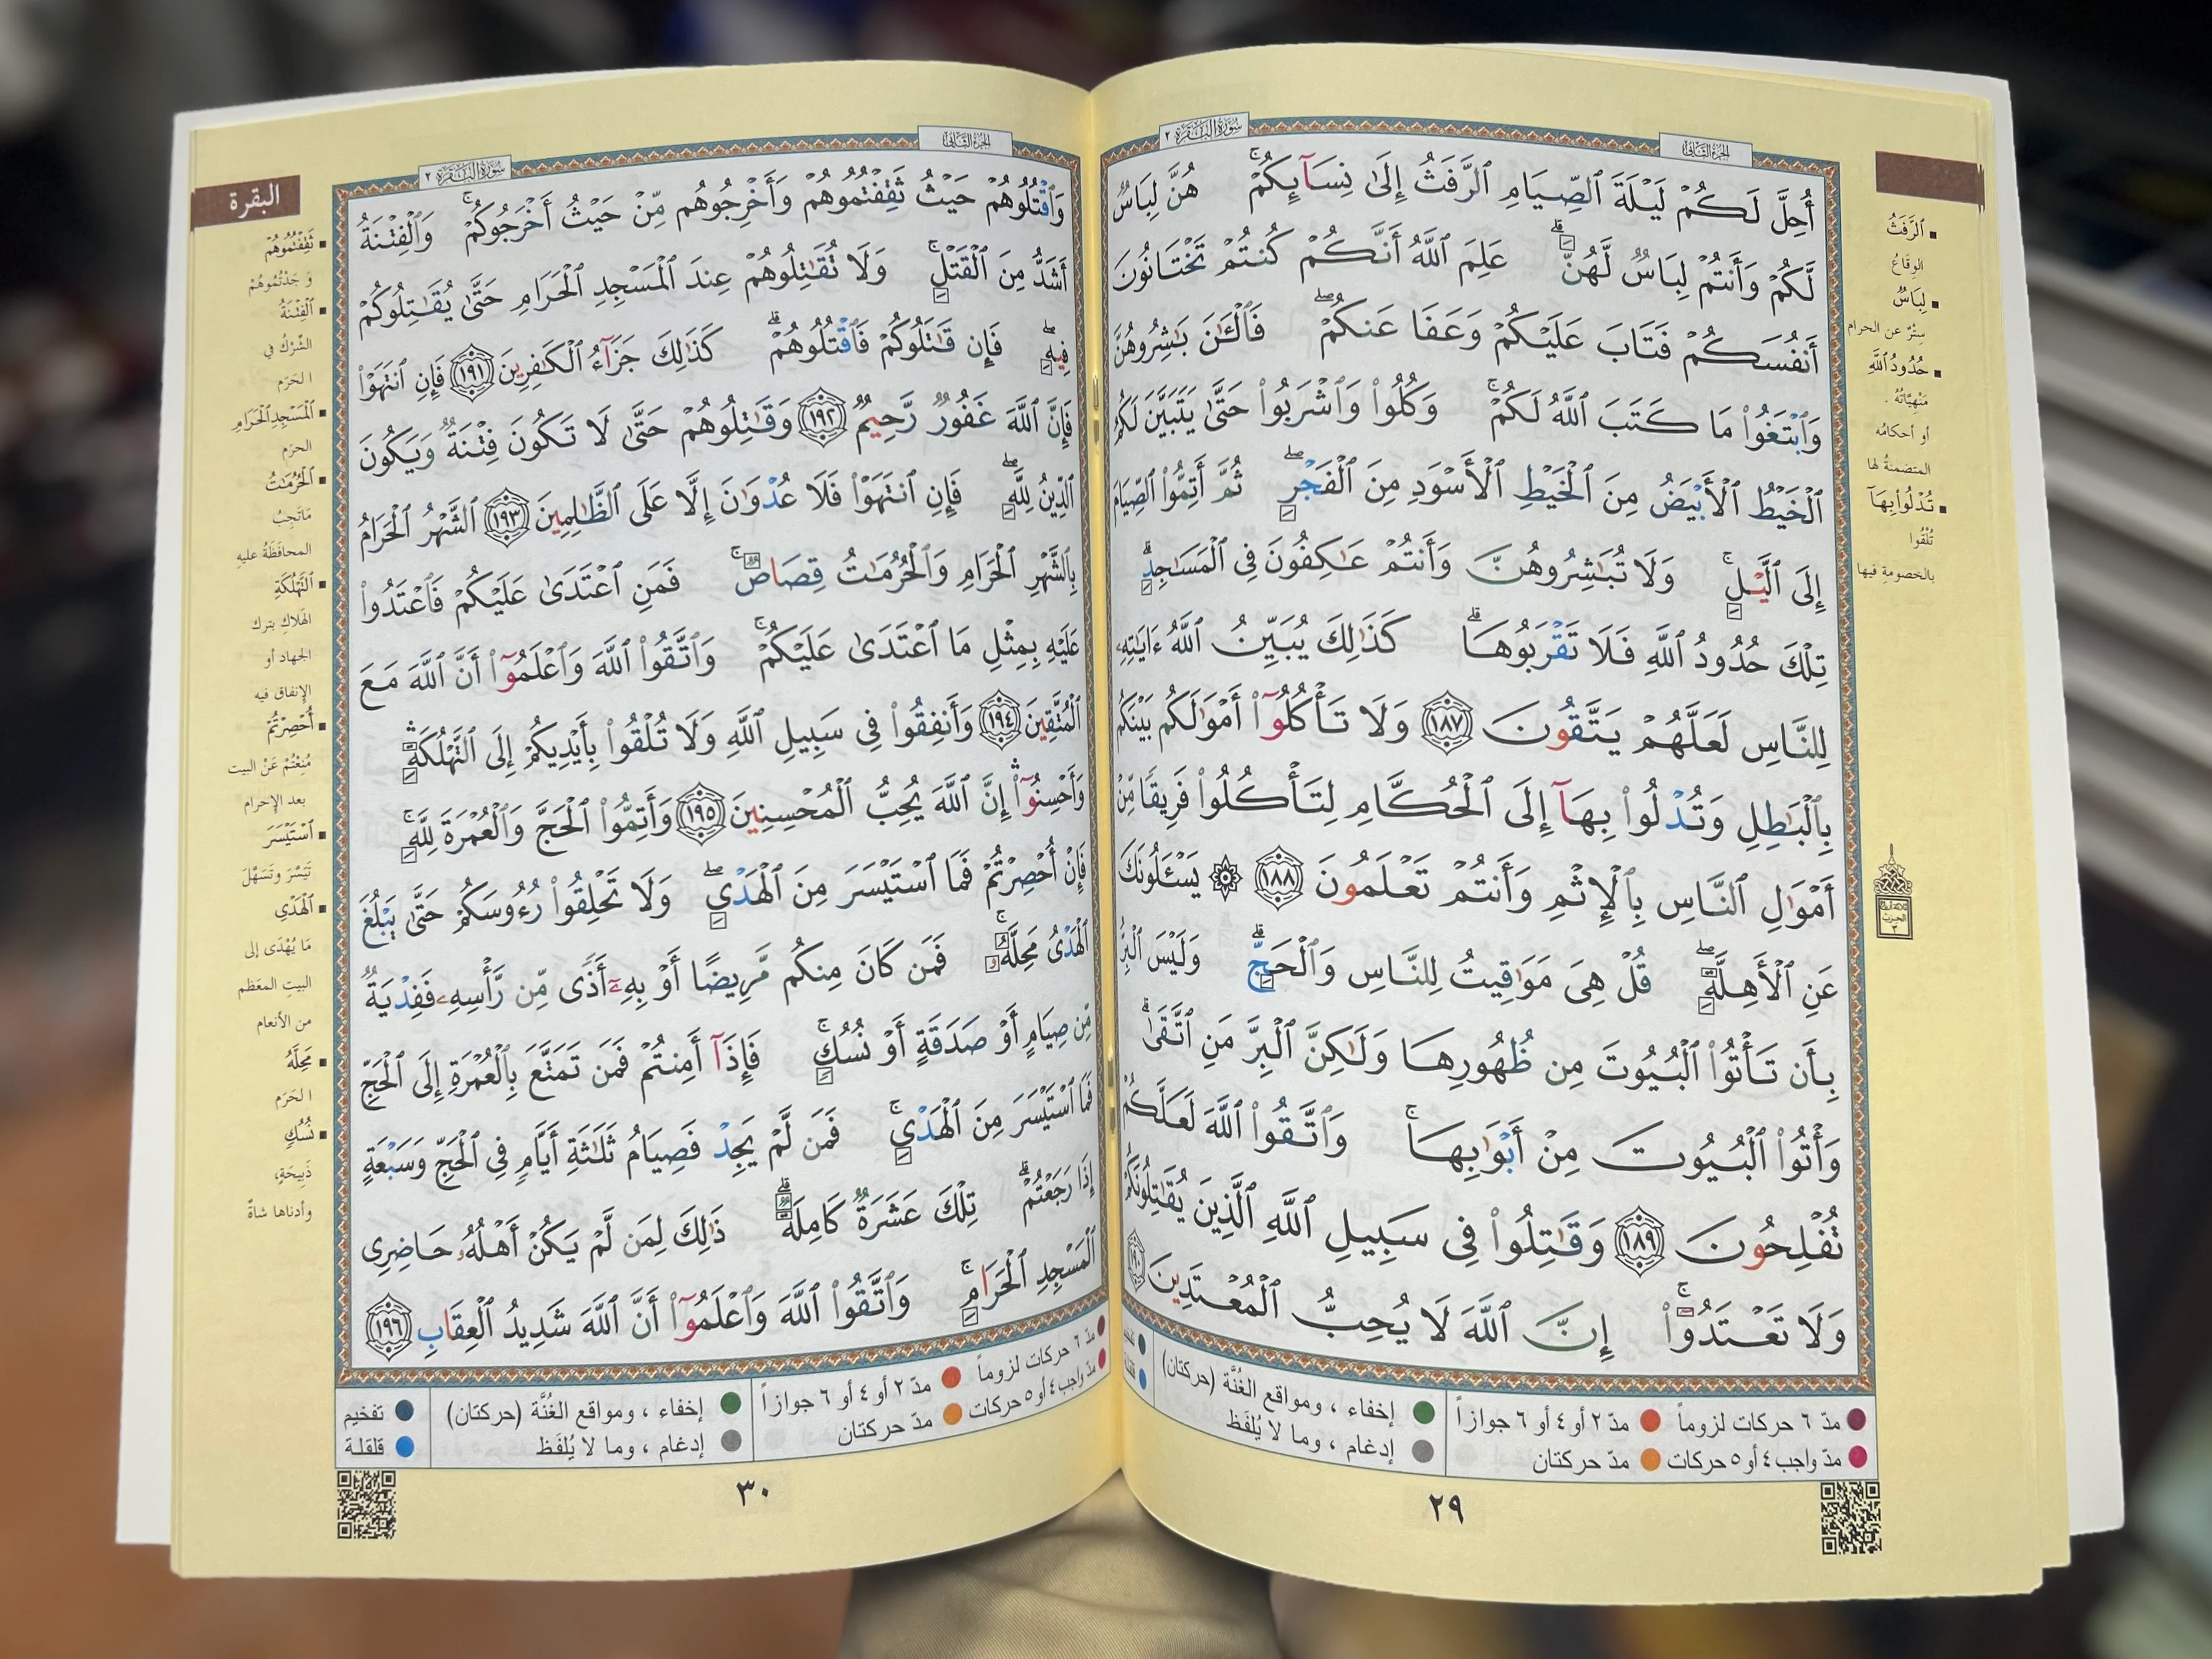 سُورَةُ البَقَرَةِ ٢
الجزء الثاني
أُحِلَّ لَكُمْ لَيْلَةَ ٱلصِّيَامِ ٱلرَّفَثُ إِلَىٰ نِسَآئِكُمْۚ هُنَّ لِبَاسٌ
لَّكُمْ وَأَنتُمْ لِبَاسٌ لَّهُنَّۗ عَلِمَ ٱللَّهُ أَنَّكُمْ كُنتُمْ تَخْتَانُونَ
أَنفُسَكُمْ فَتَابَ عَلَيْكُمْ وَعَفَا عَنكُمْۖ فَٱلْـَٰٔنَ بَـٰشِرُوهُنَّ
وَٱبْتَغُوا۟ مَا كَتَبَ ٱللَّهُ لَكُمْۚ وَكُلُوا۟ وَٱشْرَبُوا۟ حَتَّىٰ يَتَبَيَّنَ لَكُمُ
ٱلْخَيْطُ ٱلْأَبْيَضُ مِنَ ٱلْخَيْطِ ٱلْأَسْوَدِ مِنَ ٱلْفَجْرِۖ ثُمَّ أَتِمُّوا۟ ٱلصِّيَامَ
إِلَى ٱلَّيْلِۚ وَلَا تُبَـٰشِرُوهُنَّ وَأَنتُمْ عَـٰكِفُونَ فِى ٱلْمَسَـٰجِدِۗ
تِلْكَ حُدُودُ ٱللَّهِ فَلَا تَقْرَبُوهَاۗ كَذَٰلِكَ يُبَيِّنُ ٱللَّهُ ءَايَـٰتِهِۦ
لِلنَّاسِ لَعَلَّهُمْ يَتَّقُونَ ١٨٧ وَلَا تَأْكُلُوٓا۟ أَمْوَٰلَكُم بَيْنَكُم
بِٱلْبَـٰطِلِ وَتُدْلُوا۟ بِهَآ إِلَى ٱلْحُكَّامِ لِتَأْكُلُوا۟ فَرِيقًا مِّنْ
أَمْوَٰلِ ٱلنَّاسِ بِٱلْإِثْمِ وَأَنتُمْ تَعْلَمُونَ ١٨٨ ۞ يَسْـَٔلُونَكَ
عَنِ ٱلْأَهِلَّةِۖ قُلْ هِىَ مَوَٰقِيتُ لِلنَّاسِ وَٱلْحَجِّۗ وَلَيْسَ ٱلْبِرُّ
بِأَن تَأْتُوا۟ ٱلْبُيُوتَ مِن ظُهُورِهَا وَلَـٰكِنَّ ٱلْبِرَّ مَنِ ٱتَّقَىٰۗ
وَأْتُوا۟ ٱلْبُيُوتَ مِنْ أَبْوَٰبِهَاۚ وَٱتَّقُوا۟ ٱللَّهَ لَعَلَّكُمْ
تُفْلِحُونَ ١٨٩ وَقَـٰتِلُوا۟ فِى سَبِيلِ ٱللَّهِ ٱلَّذِينَ يُقَـٰتِلُونَكُمْ
وَلَا تَعْتَدُوٓا۟ۚ إِنَّ ٱللَّهَ لَا يُحِبُّ ٱلْمُعْتَدِينَ ١٩٠
ٱلرَّفَثُ
الوِقَاعُ
لِبَاسٌ
سِتْرٌ عن الحرام
حُدُودُ ٱللَّهِ
مَنْهِيَّاتُهُ .
أو أحكامُه
المتضمنةُ لها
تُدْلُوا۟ بِهَآ
تُلْقُوا
بالخصومةِ فيها
الحزب
٣
مدّ ٦ حركات لزوماً مدّ ٢ أو ٤ أو ٦ جوازاً
مدّ واجب ٤ أو ٥ حركات مدّ حركتان
إخفاء ، ومواقع الغُنَّة (حركتان)
إدغام ، وما لا يُلفَظ
٢٩
الجزء الثاني
سُورَةُ البَقَرَةِ ٢
البقرة
وَٱقْتُلُوهُمْ حَيْثُ ثَقِفْتُمُوهُمْ وَأَخْرِجُوهُم مِّنْ حَيْثُ أَخْرَجُوكُمْۚ وَٱلْفِتْنَةُ
أَشَدُّ مِنَ ٱلْقَتْلِۚ وَلَا تُقَـٰتِلُوهُمْ عِندَ ٱلْمَسْجِدِ ٱلْحَرَامِ حَتَّىٰ يُقَـٰتِلُوكُمْ
فِيهِۖ فَإِن قَـٰتَلُوكُمْ فَٱقْتُلُوهُمْۗ كَذَٰلِكَ جَزَآءُ ٱلْكَـٰفِرِينَ ١٩١ فَإِنِ ٱنتَهَوْا۟
فَإِنَّ ٱللَّهَ غَفُورٌ رَّحِيمٌ ١٩٢ وَقَـٰتِلُوهُمْ حَتَّىٰ لَا تَكُونَ فِتْنَةٌ وَيَكُونَ
ٱلدِّينُ لِلَّهِۖ فَإِنِ ٱنتَهَوْا۟ فَلَا عُدْوَٰنَ إِلَّا عَلَى ٱلظَّـٰلِمِينَ ١٩٣ ٱلشَّهْرُ ٱلْحَرَامُ
بِٱلشَّهْرِ ٱلْحَرَامِ وَٱلْحُرُمَـٰتُ قِصَاصٌۚ فَمَنِ ٱعْتَدَىٰ عَلَيْكُمْ فَٱعْتَدُوا۟
عَلَيْهِ بِمِثْلِ مَا ٱعْتَدَىٰ عَلَيْكُمْۚ وَٱتَّقُوا۟ ٱللَّهَ وَٱعْلَمُوٓا۟ أَنَّ ٱللَّهَ مَعَ
ٱلْمُتَّقِينَ ١٩٤ وَأَنفِقُوا۟ فِى سَبِيلِ ٱللَّهِ وَلَا تُلْقُوا۟ بِأَيْدِيكُمْ إِلَى ٱلتَّهْلُكَةِۛ
وَأَحْسِنُوٓا۟ۛ إِنَّ ٱللَّهَ يُحِبُّ ٱلْمُحْسِنِينَ ١٩٥ وَأَتِمُّوا۟ ٱلْحَجَّ وَٱلْعُمْرَةَ لِلَّهِۚ
فَإِنْ أُحْصِرْتُمْ فَمَا ٱسْتَيْسَرَ مِنَ ٱلْهَدْىِۖ وَلَا تَحْلِقُوا۟ رُءُوسَكُمْ حَتَّىٰ يَبْلُغَ
ٱلْهَدْىُ مَحِلَّهُۥۚ فَمَن كَانَ مِنكُم مَّرِيضًا أَوْ بِهِۦٓ أَذًى مِّن رَّأْسِهِۦ فَفِدْيَةٌ
مِّن صِيَامٍ أَوْ صَدَقَةٍ أَوْ نُسُكٍۚ فَإِذَآ أَمِنتُمْ فَمَن تَمَتَّعَ بِٱلْعُمْرَةِ إِلَى ٱلْحَجِّ
فَمَا ٱسْتَيْسَرَ مِنَ ٱلْهَدْىِۚ فَمَن لَّمْ يَجِدْ فَصِيَامُ ثَلَـٰثَةِ أَيَّامٍ فِى ٱلْحَجِّ وَسَبْعَةٍ
إِذَا رَجَعْتُمْۗ تِلْكَ عَشَرَةٌ كَامِلَةٌۗ ذَٰلِكَ لِمَن لَّمْ يَكُنْ أَهْلُهُۥ حَاضِرِى
ٱلْمَسْجِدِ ٱلْحَرَامِۚ وَٱتَّقُوا۟ ٱللَّهَ وَٱعْلَمُوٓا۟ أَنَّ ٱللَّهَ شَدِيدُ ٱلْعِقَابِ ١٩٦
ثَقِفْتُمُوهُمْ
وَجَدْتُمُوهُمْ
ٱلْفِتْنَةُ
الشِّرْكُ في
الحَرَم
ٱلْمَسْجِدِ ٱلْحَرَامِ
الحرَم
ٱلْحُرُمَـٰتُ
مَاتَجِبُ
المحافَظَةُ عليهِ
ٱلتَّهْلُكَةِ
الهَلاكِ بترك
الجهاد أو
الإنفاق فيه
أُحْصِرْتُمْ
مُنِعْتُمْ عَنْ البيت
بعد الإحرام
ٱسْتَيْسَرَ
تَيَسَّرَ وتَسَهَّلَ
ٱلْهَدْىِ
مَا يُهْدَى إلى
البيتِ المعَظم
من الأنعام
مَحِلَّهُۥ
الحَرَم
نُسُكٍ
ذَبِيحَةٍ،
وأدناها شاةٌ
مدّ ٦ حركات لزوماً مدّ ٢ أو ٤ أو ٦ جوازاً
مدّ واجب ٤ أو ٥ حركات مدّ حركتان
إخفاء ، ومواقع الغُنَّة (حركتان)
إدغام ، وما لا يُلفَظ
تفخيم
قلقلة
٣٠